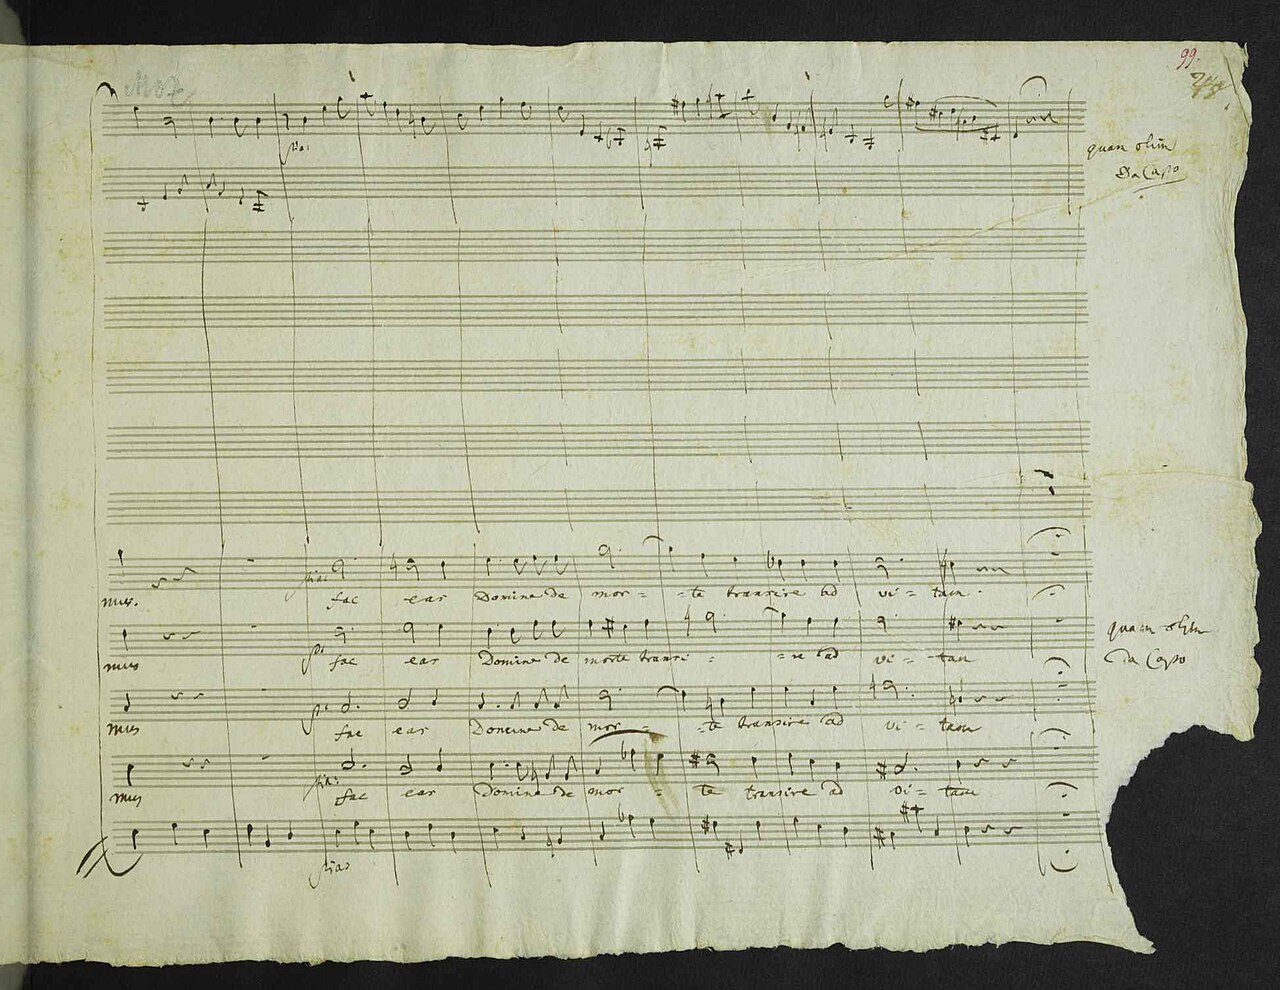 99.
Moz
pia:
quam olim
Da Capo
pia:
mus. fac eas Domine de mor = te transire ad vi = tam.
quam olim
da Capo
mus fac eas Domine de morte transi = = re ad vi = tam
mus fac eas Domine de mor = te transire ad vi = tam
pia:
mus fac eas Domine de mor = te transire ad vi = tam
pia: